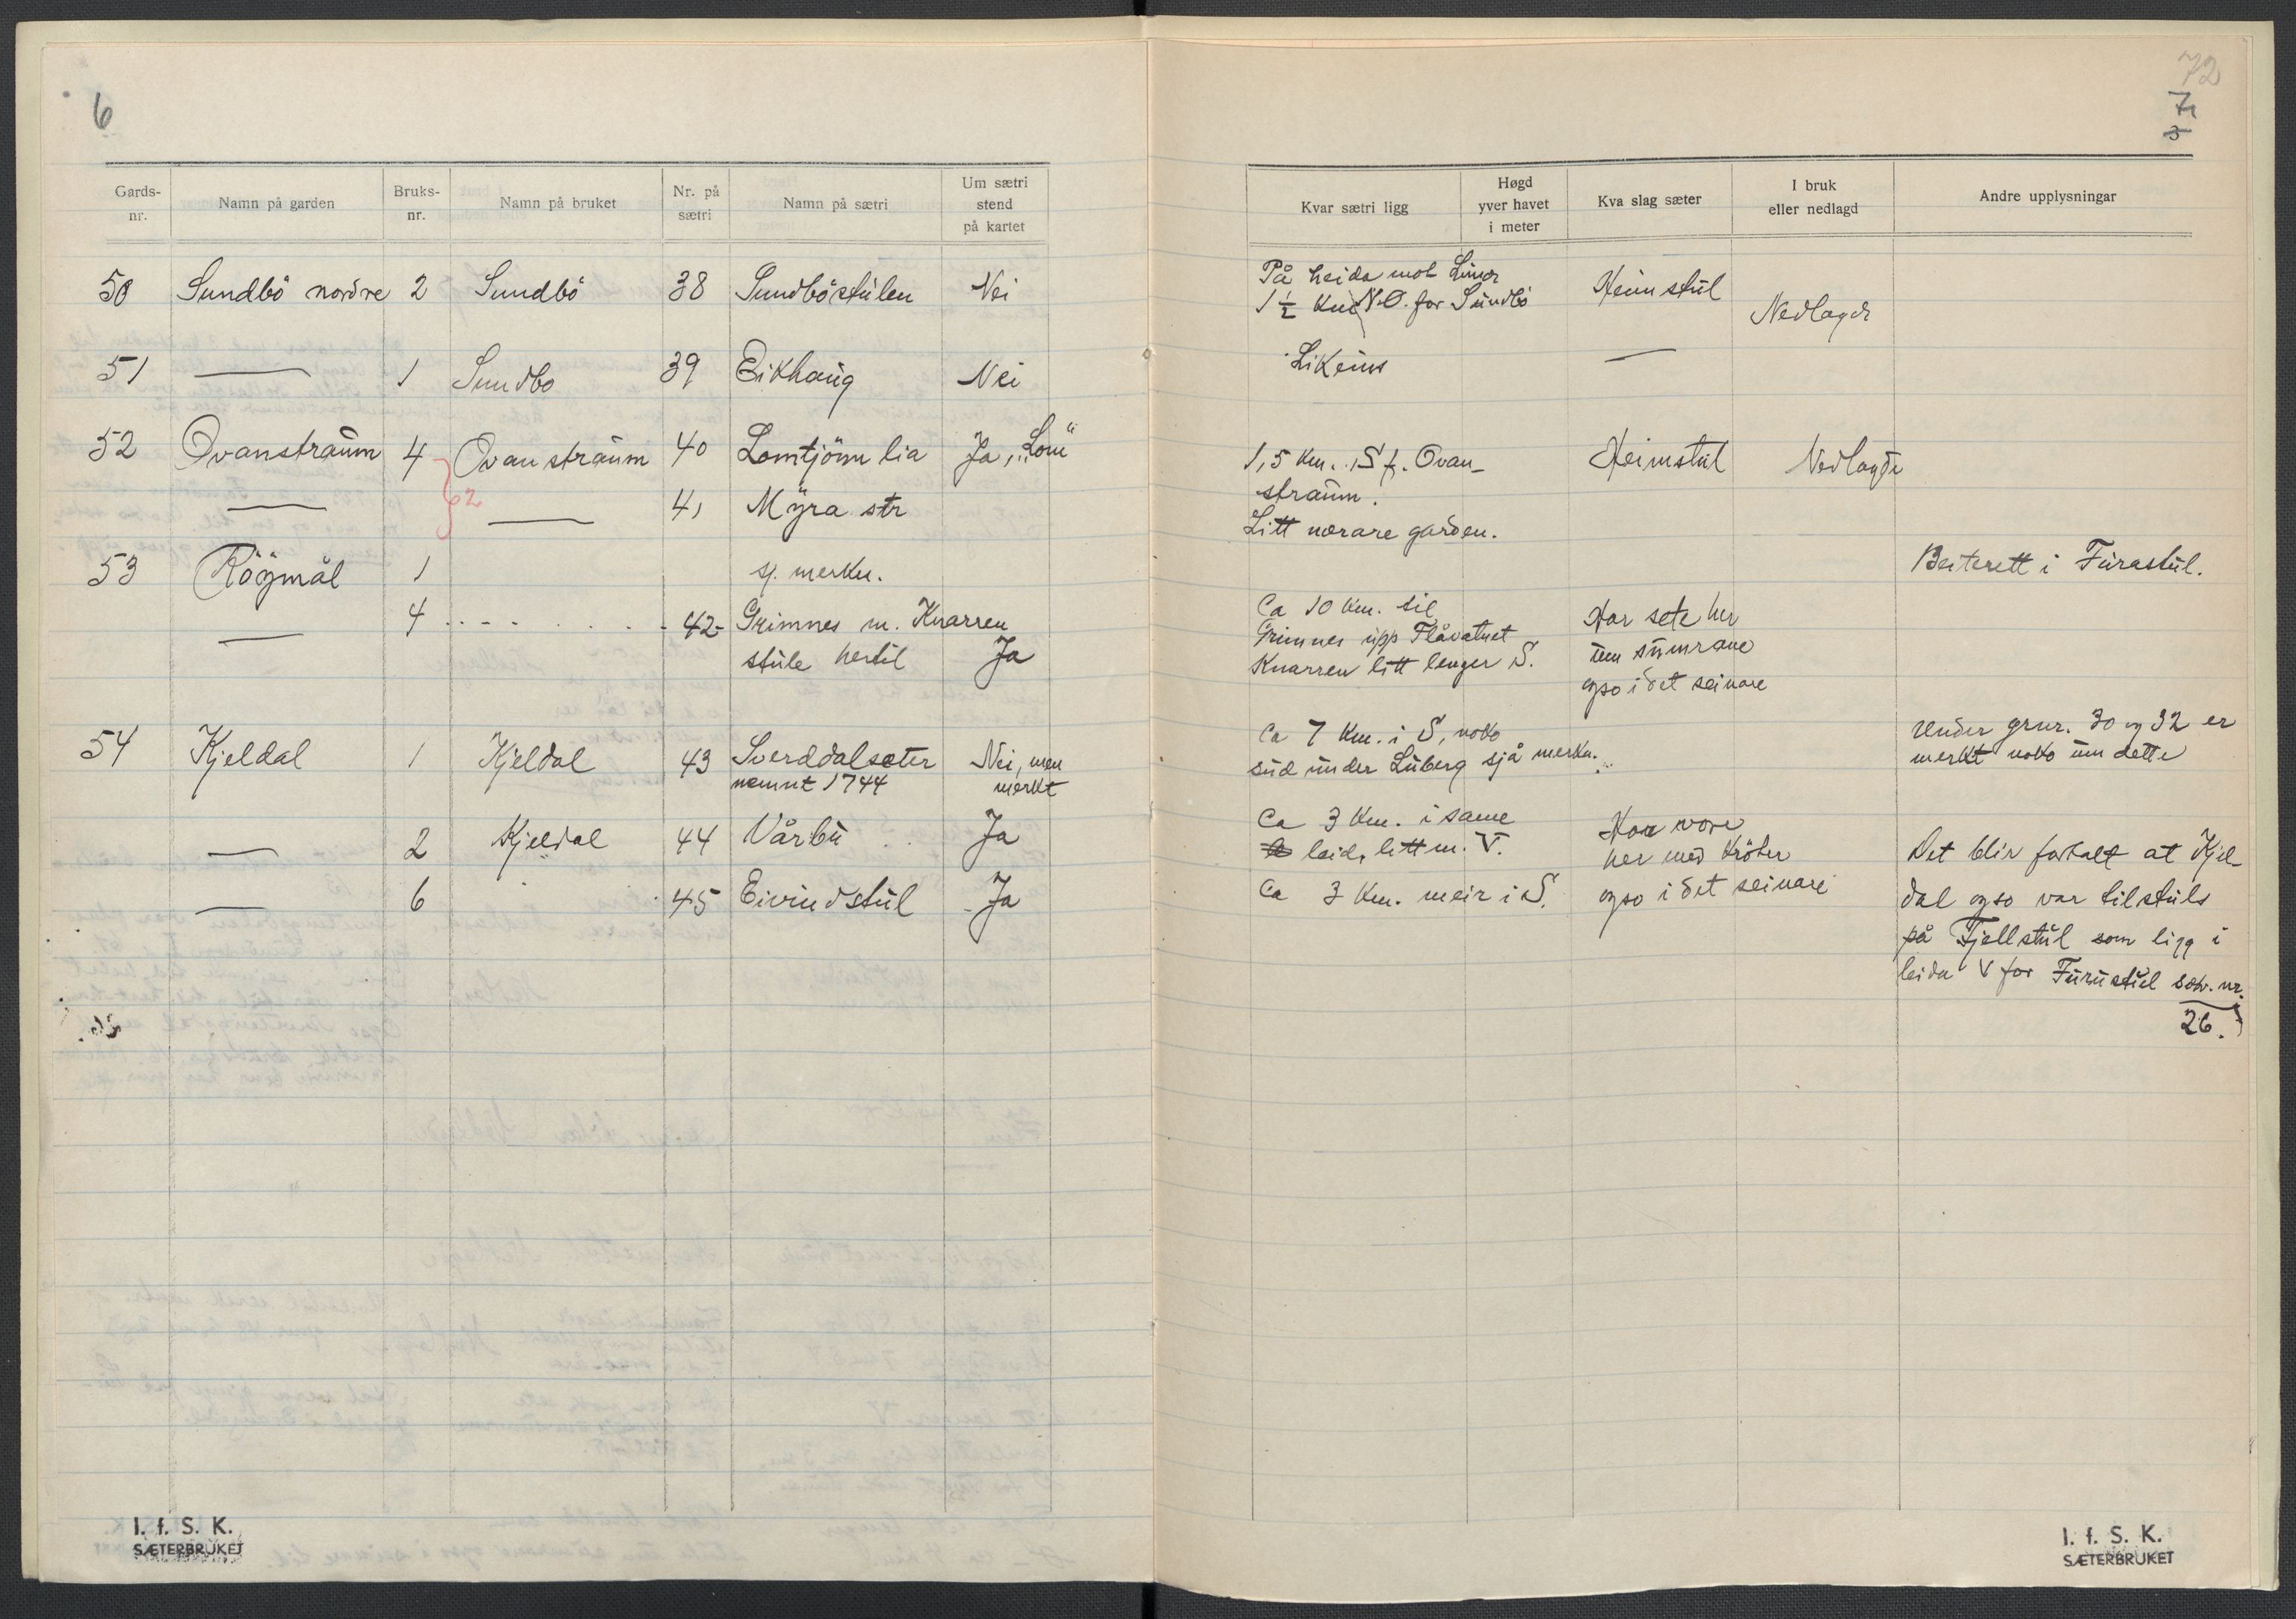 6
Gards-nr. Namn på garden Bruks-nr. Namn på bruket Nr. på sætri Namn på sætri Um sætri stend på kartet
50 Sundbö nordre 2 Sundbö 38 Sundböstulen Nei
51 — 1 Sundbo 39 Eikhaug Nei
52 Ovanstraum 4 Ovanstraum 40 Lomtjönn lia Ja, „Lom"
— 2 — 41 Myra str
53 Röymål 1 sj. merkn.
— 4 42 Grimnes m. Knarren
stule hertil Ja
54 Kjeldal 1 Kjeldal 43 Sverddalsæter Nei, men
nemnt 1744 merkt
— 2 Kjeldal 44 Vårbu Ja
— 6 45 Eivindstul Ja
I. f. S. K.
SÆTERBRUKET
72
7
3
Kvar sætri ligg Høgd yver havet i meter Kva slag sæter I bruk eller nedlagd Andre upplysningar
På heida mot
1 ½ km N.O. for Sundbö Heimstul Nedlagd
Likeins —
1,5 km. S f. Ovan- Heimstul Nedlagde
straum.
Litt nærare garden.
Beiterett i Furastul.
Ca 10 km. til Har sete her
Grimnes upp Flåvatnet um sumrane
Knarren litt lenger S. ogso i det seinare
Ca 7 km. i S, noko Under grnr. 30 og 32 er
sud under Luberg sjå merkn. merkt noko um dette
Ca 3 km. i same Har vore
leid, litt m. V. her med kröter Det blir fortalt at Kjel
Ca 3 km. meir i S. ogso i det seinare dal ogso var tilstuls
på Fjellstul som ligg i
leida V for Furustul sæt. nr.
26.
I. f. S. K.
SÆTERBRUKET